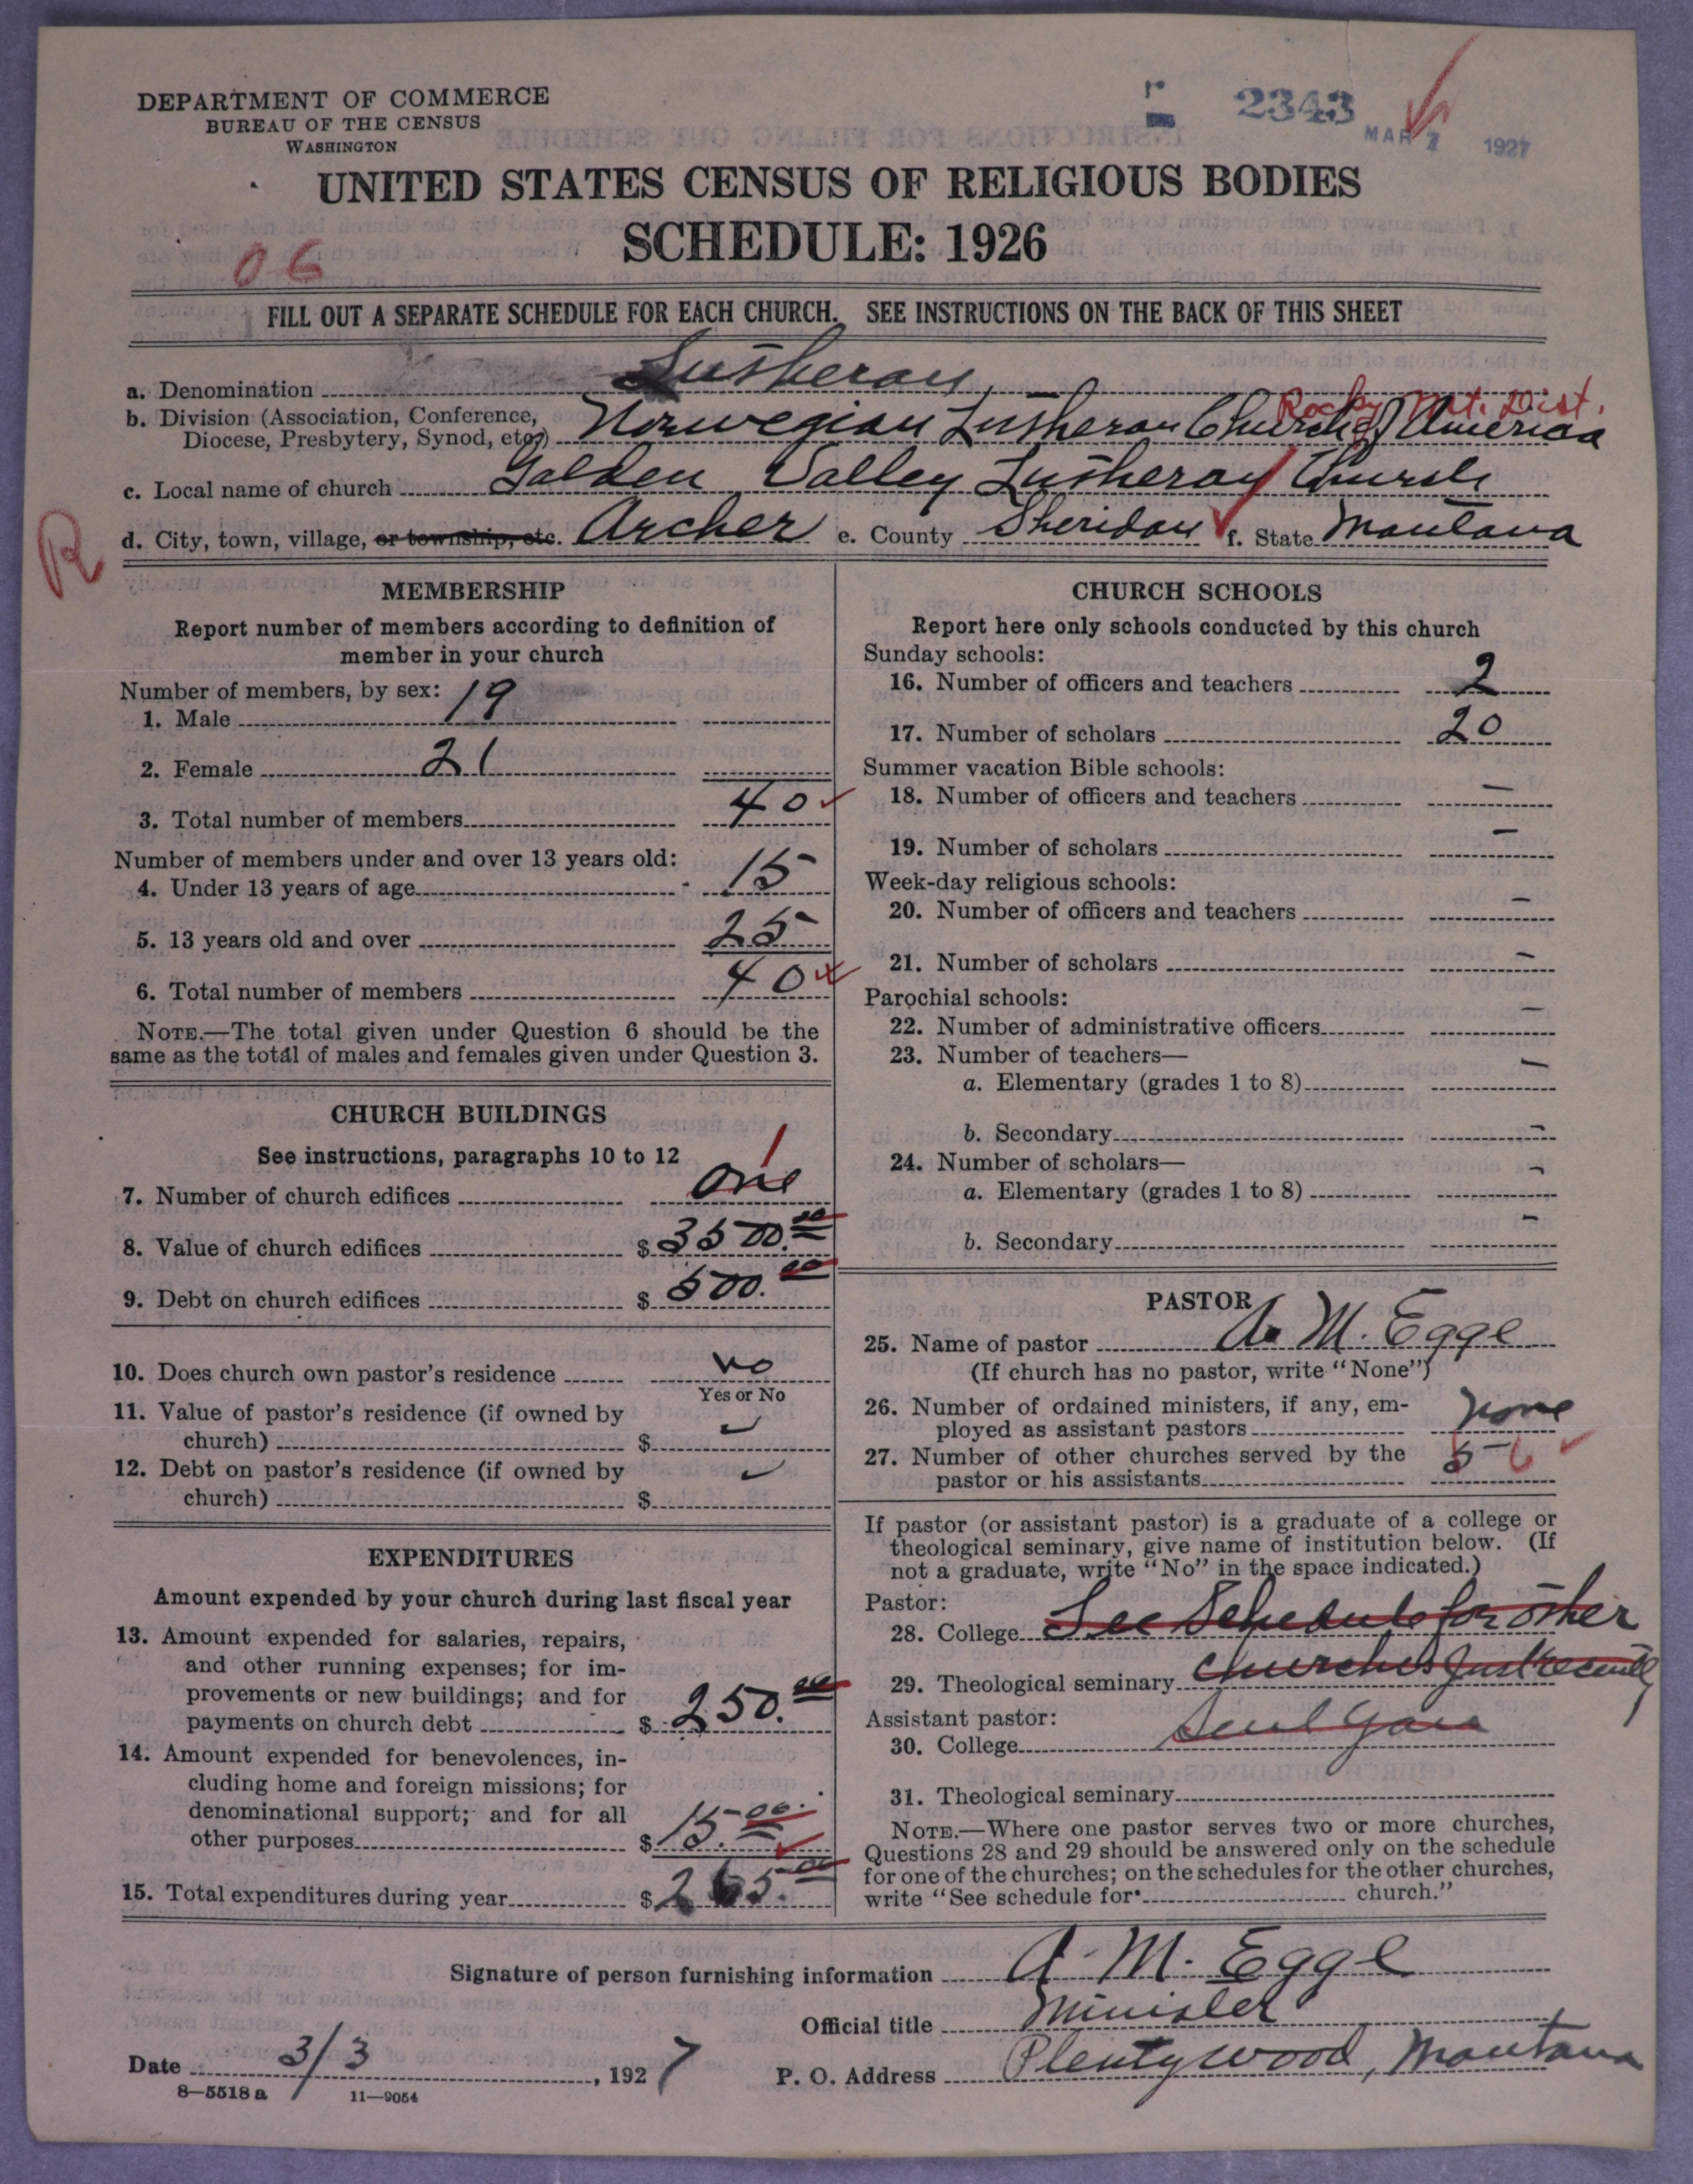 DEPARTMENT OF COMMERCE
BUREAU OF THE CENSUS
WASHINGTON
2343
MAR 7 1927
UNITED STATES CENSUS OF RELIGIOUS BODIES
SCHEDULE: 1926
06
FILL OUT A SEPARATE SCHEDULE FOR EACH CHURCH. SEE INSTRUCTIONS ON THE BACK OF THIS SHEET
a. Denomination Lutheran
Rocky Mt. Dist.
b. Division (Association, Conference,
Diocese, Presbytery, Synod, etc.) Norwegian Lutheran Church of America
c. Local name of church Golden Valley Lutheran Church
R
d. City, town, village, or township, etc. Archer e. County Sheridan f. State Montana
MEMBERSHIP
Report number of members according to definition of
member in your church
Number of members, by sex:
1. Male 19
2. Female 21
3. Total number of members 40
Number of members under and over 13 years old:
4. Under 13 years of age 15
5. 13 years old and over 25
6. Total number of members 40
NOTE.—The total given under Question 6 should be the
same as the total of males and females given under Question 3.
CHURCH BUILDINGS
See instructions, paragraphs 10 to 12
1
7. Number of church edifices One
8. Value of church edifices $3500.00
9. Debt on church edifices $500.00
10. Does church own pastor's residence No
Yes or No
11. Value of pastor's residence (if owned by
church) $
12. Debt on pastor's residence (if owned by
church) $
EXPENDITURES
Amount expended by your church during last fiscal year
13. Amount expended for salaries, repairs,
and other running expenses; for im-
provements or new buildings; and for
payments on church debt $250.00
14. Amount expended for benevolences, in-
cluding home and foreign missions; for
denominational support; and for all
other purposes $15.00
15. Total expenditures during year $265.00
CHURCH SCHOOLS
Report here only schools conducted by this church
Sunday schools:
16. Number of officers and teachers 2
17. Number of scholars 20
Summer vacation Bible schools:
18. Number of officers and teachers –
19. Number of scholars –
Week-day religious schools:
20. Number of officers and teachers –
21. Number of scholars –
Parochial schools:
22. Number of administrative officers –
23. Number of teachers—
a. Elementary (grades 1 to 8) –
b. Secondary –
24. Number of scholars—
a. Elementary (grades 1 to 8) –
b. Secondary –
PASTOR
25. Name of pastor A. M. Egge
(If church has no pastor, write "None")
26. Number of ordained ministers, if any, em-
ployed as assistant pastors None
27. Number of other churches served by the
pastor or his assistants 5 6
If pastor (or assistant pastor) is a graduate of a college or
theological seminary, give name of institution below. (If
not a graduate, write "No" in the space indicated.)
Pastor:
28. College See Schedule for other
29. Theological seminary churches just recently
Assistant pastor:
30. College sent you
31. Theological seminary
NOTE.—Where one pastor serves two or more churches,
Questions 28 and 29 should be answered only on the schedule
for one of the churches; on the schedules for the other churches,
write "See schedule for church."
Signature of person furnishing information A. M. Egge
Official title Minister
Date 3/3, 1927 P. O. Address Plentywood, Montana
8—5518 a 11—9054